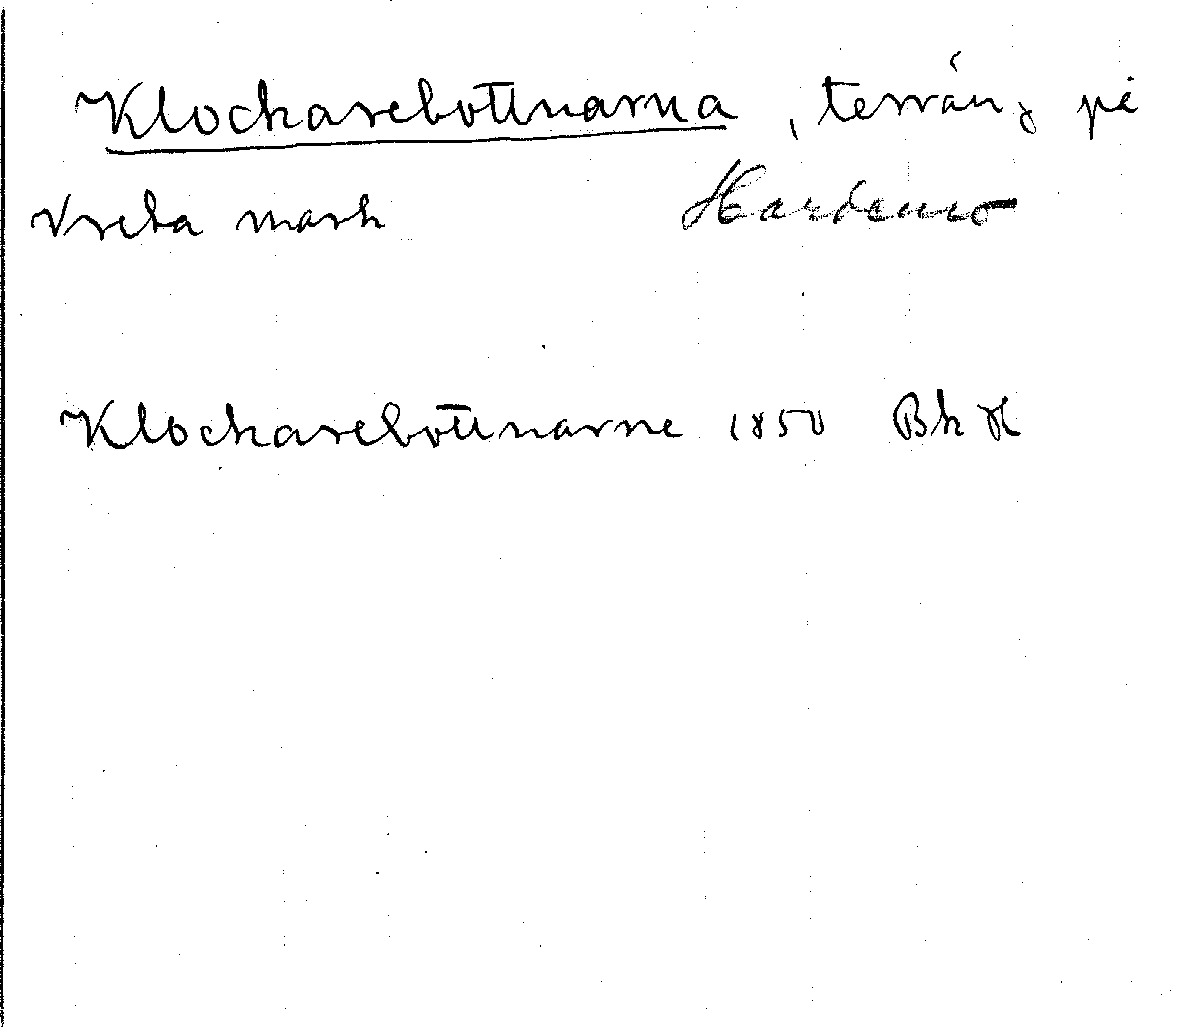 Klockarebottnarna, terräng på
Vreta mark Hardemo
Klockarebottnarne 1850 Bk H